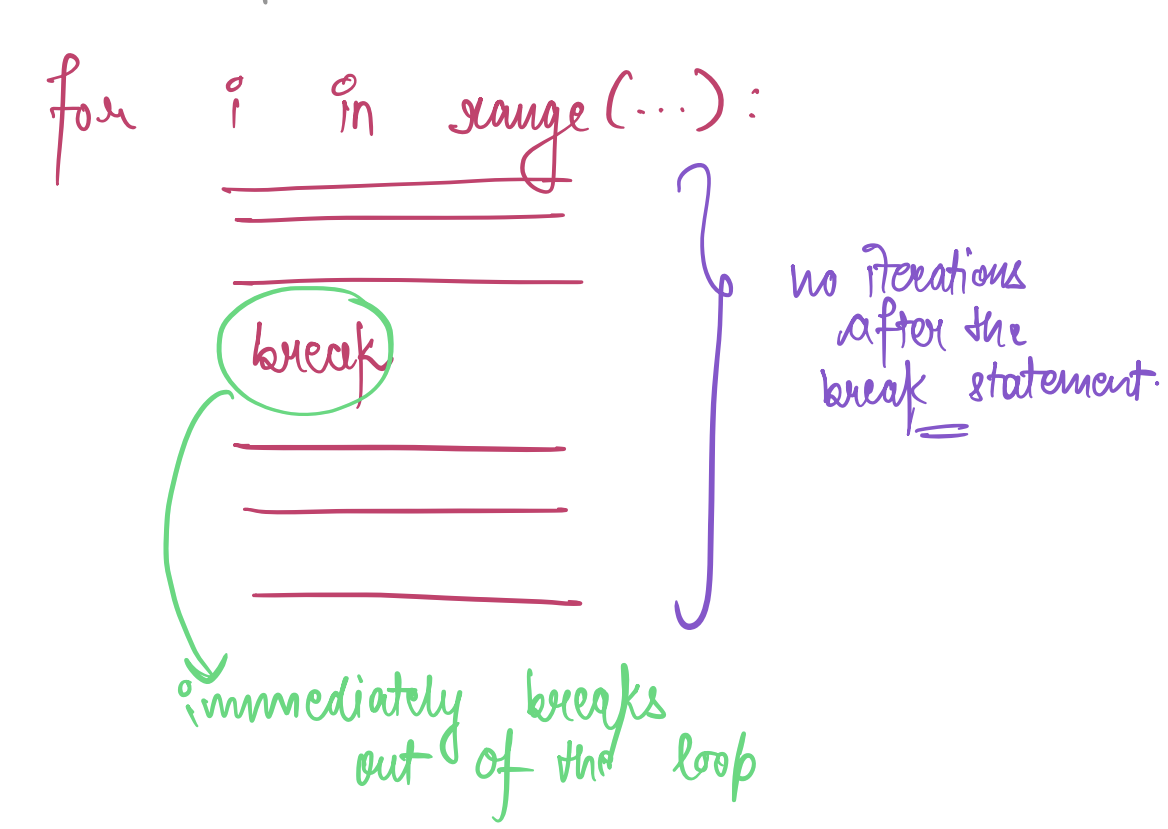 for i in range(...):
break
no iterations
after the
break statement.
immediately breaks
out of the loop